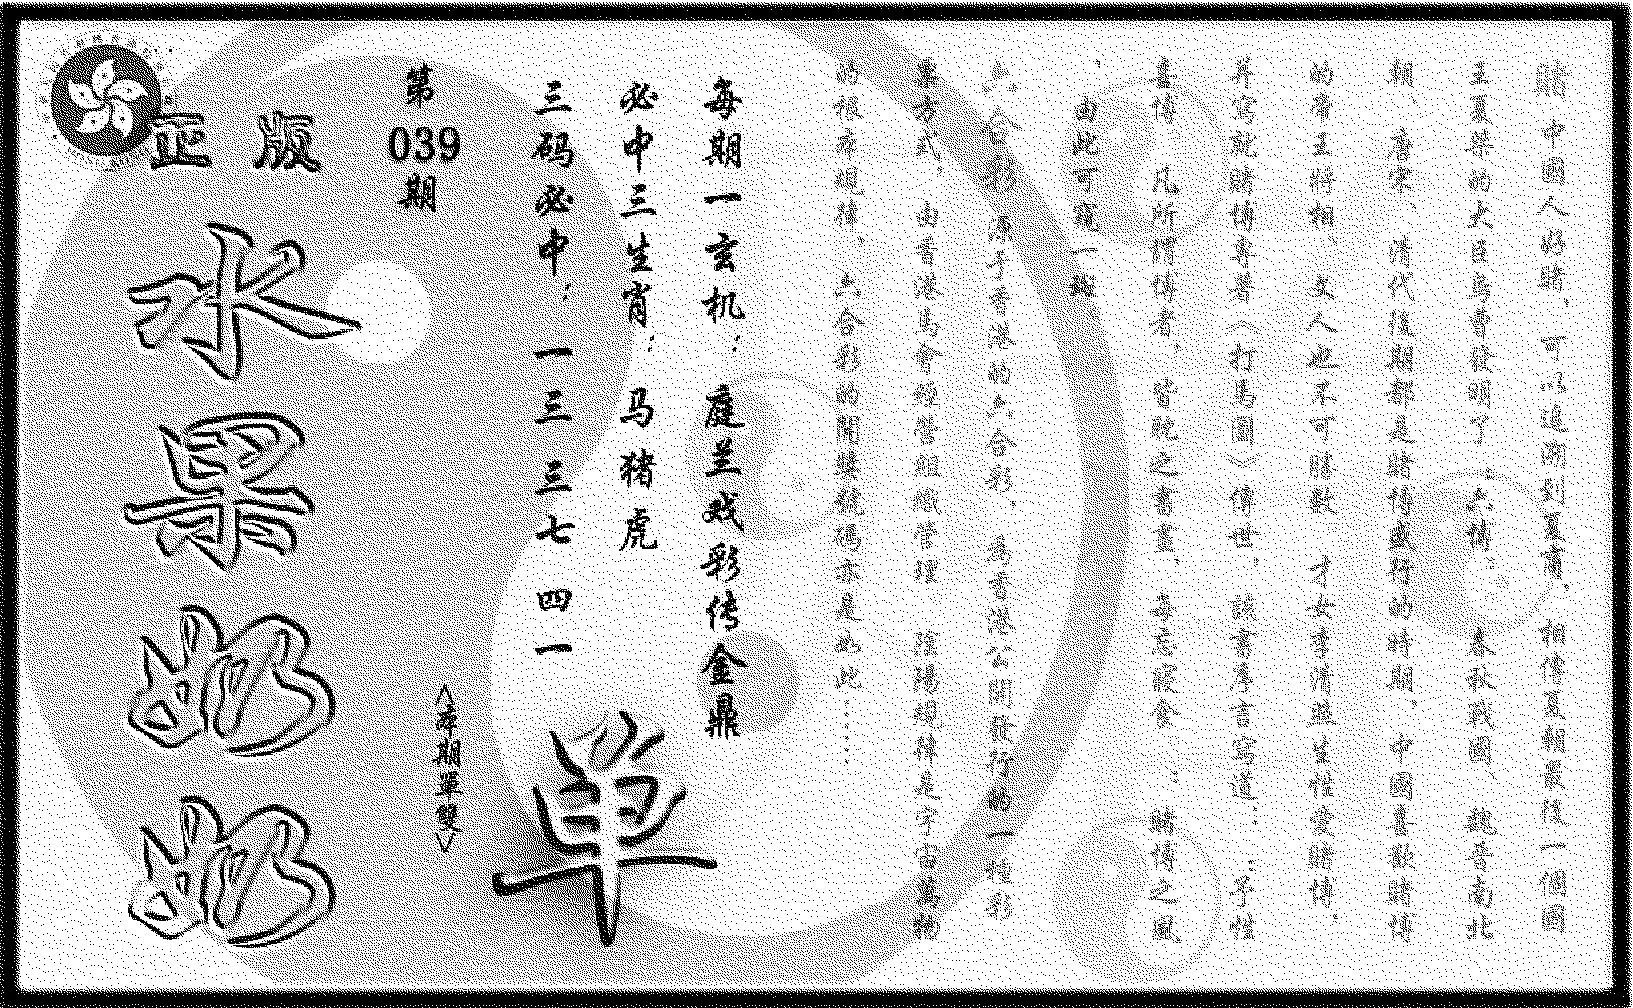 賭 中國人好賭，可以追溯到夏商，相傳夏朝最後一個國
王夏桀的大臣烏曹發明了：六博，春秋戰國、魏晉南北
期 唐宋、清代後期都是賭博盛行的時期，中國喜歡賭博
的帝王將相 文人也不可勝數 才女李清照生性愛賭博，
并寫就賭博專著（打馬圖）傳世，該書序言寫道：：予性
喜博 凡所謂博者，皆耽之晝夜，每忘寢食 ：賭博之風
，由此可窺一斑
六合彩 源于香港的六合彩，為香港公開發行的一種彩
票方式，由香港馬會經營組織管理 陰陽順降是宇宙萬物
的根本規律，六合彩的開獎號碼亦是為此……
每期一玄机：庭兰戏彩传金鼎
必中三生肖：马猪虎
三码必中：一三 三七 四一
第
039
期
正版
水果奶奶
<本期單雙>
单